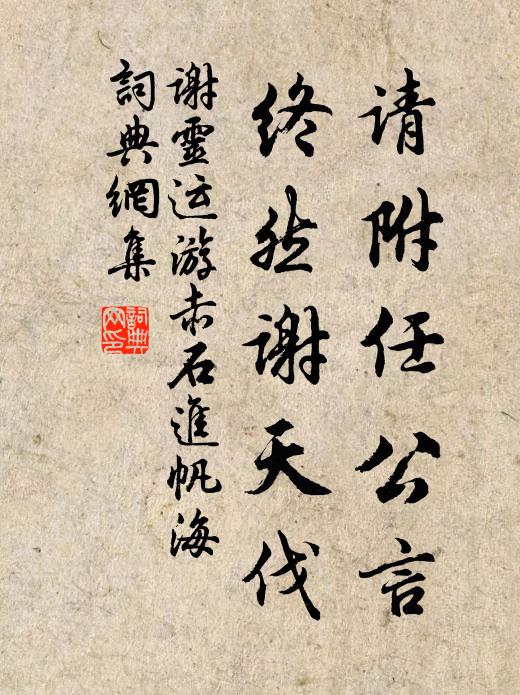 请附任公言
终然谢天伐
谢靈运游赤石進帆海
詞典網集
詞典网印